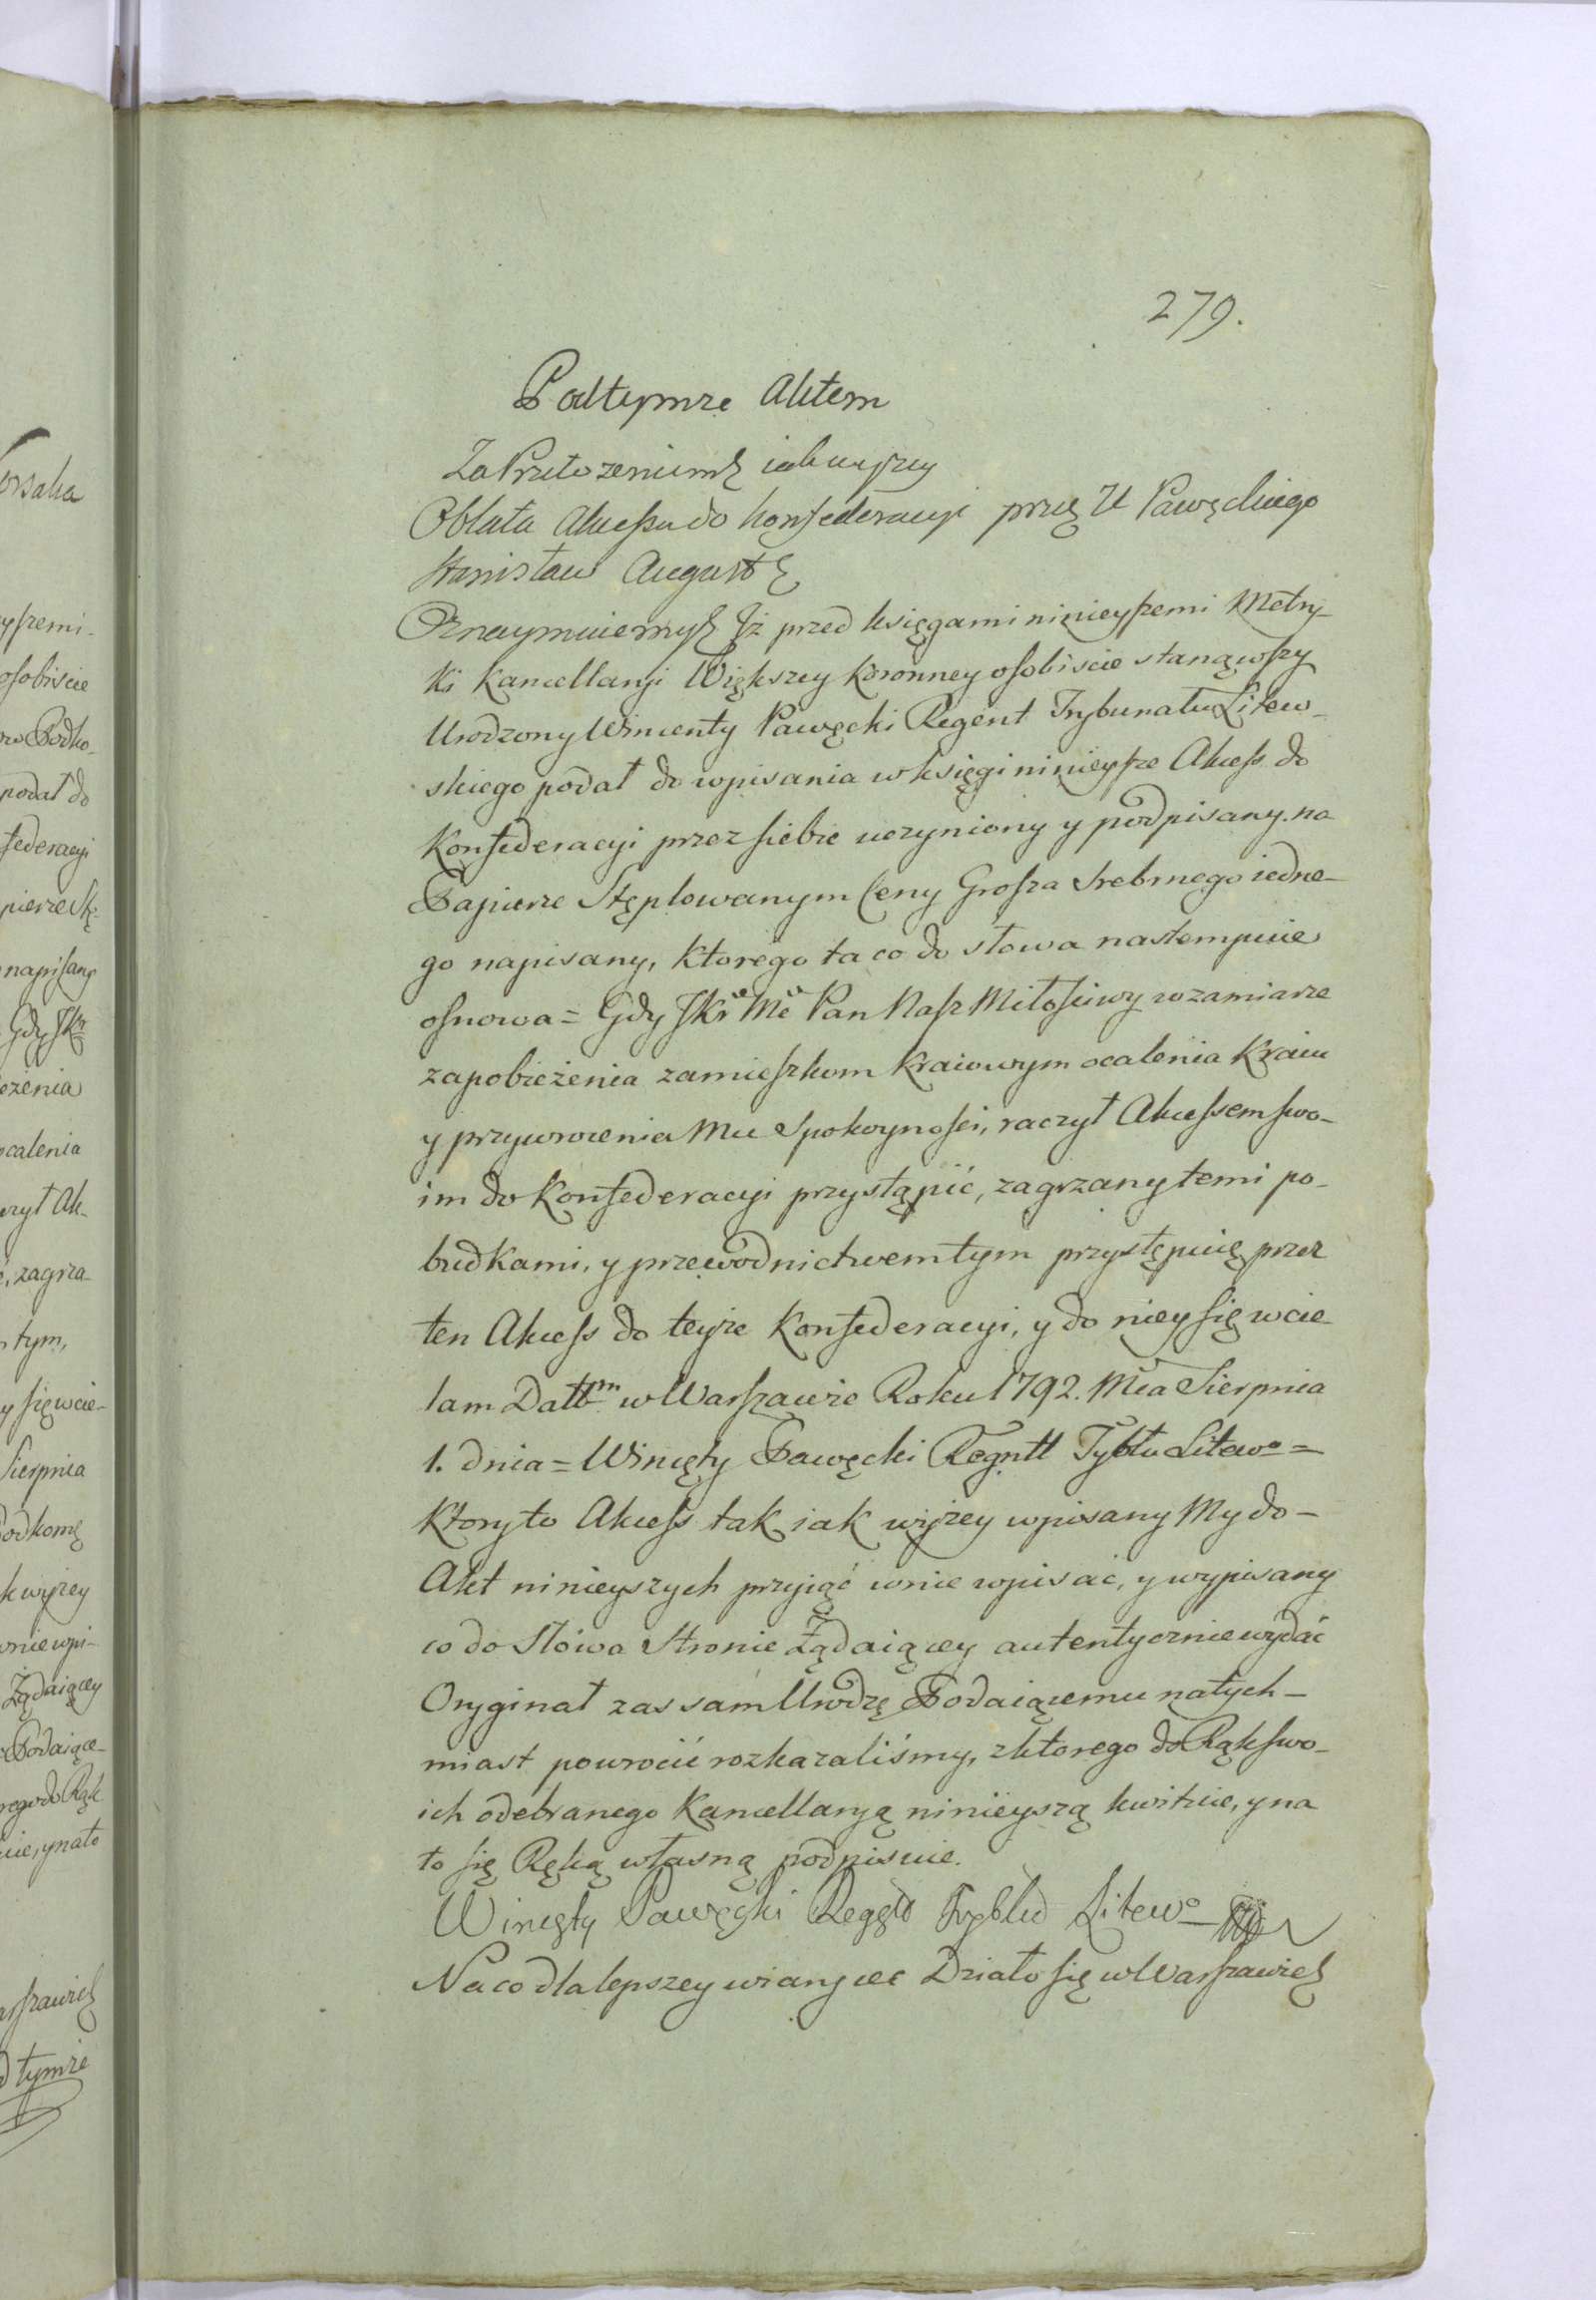 279.
Podtymze Aktem
Za Przełozeniem iak wyzey
Oblata Akcessu do Konfederacyi przez U Pawęckiego
Stanisław August
Oznaymuiemy Iż przed księgami ninieyszemi Metry-
ki Kancellaryi Większey Koronney osobiscie stanąwszy
Urodzony Wincenty Pawęcki Regent Trybunału Litew-
skiego podał do wpisania w księgi ninieysze Akcess do
Konfederacyi przez siebie uczyniony y podpisany na
Papierze Stęplowanym Ceny Grosza Srebrnego iedne-
go napisany, ktorego ta co do słowa nastempuie
osnowa = Gdy JKr Mć Pan Nasz Miłosciwy w zamiarze
zapobieżenia zamieszkom Kraiowym ocalenia Kraiu
y przywrocenia Mu Spokoynosci, raczył Akcessem swo-
im do Konfederacyi przystąpić, zagrzany temi po-
budkami, y przewodnictwem tym przystępuię przez
ten Akcess do teyze Konfederacyi, y do niey się wcie-
lam Datt w Warszawie Roku 1792. Mca Sierpnia
1. dnia = Wincęty Pawęcki Regntt Tybłu Litewo =
Ktoryto Akcess tak iak wyżey wpisany My do -
Akt ninieyszych przyiąć w nie wpisać, y wypisany
co do Słowa Stronie Żądaiącey autentycznie wydać
Oryginał zas sam Urodzę Podaiącemu natych-
miast powrocić rozkazaliśmy, z ktorego do Rąk swo-
ich odebranego Kancellaryą ninieyszą kwituie, y na
to się Ręką własną podpisuie.
Wincęty Pawęcki Regęt Trybłu Litewo
Na co dla lepszey wiary etc Działo się w Warszawie